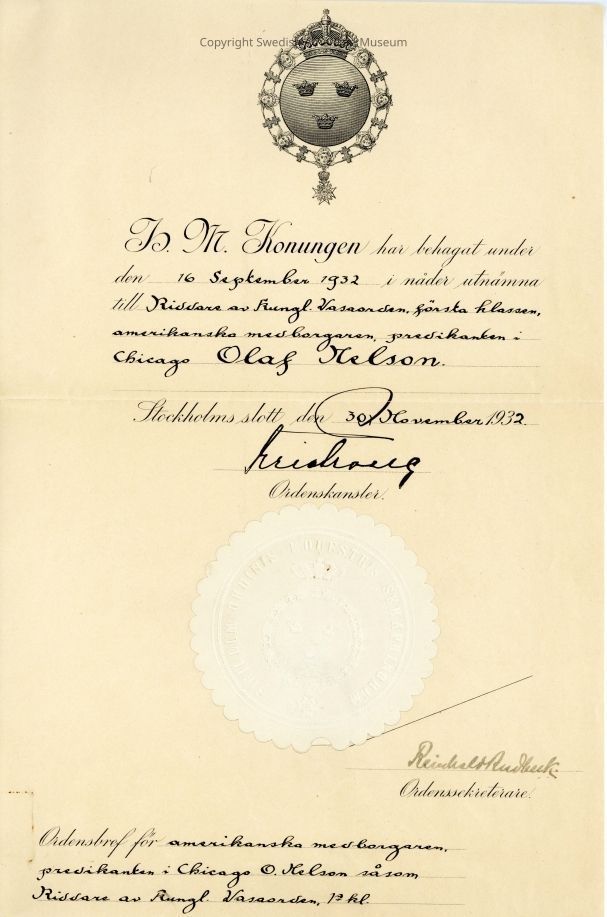 Copyright Swedish Museum
H. M. Konungen har behagat under
den 16 September 1932 i nåder utnämna
till Riddare av Kungl. Vasaorden, första klassen,
amerikanska medborgaren, predikanten i
Chicago Olaf Nelson.
Stockholms slott den 30 November 1932.
Ordenskansler.
Reinhold Rudbeck.
Ordenssekreterare.
Ordensbref för amerikanska medborgaren,
predikanten i Chicago O. Nelson såsom
Riddare av Kungl. Vasaorden, 1a kl.